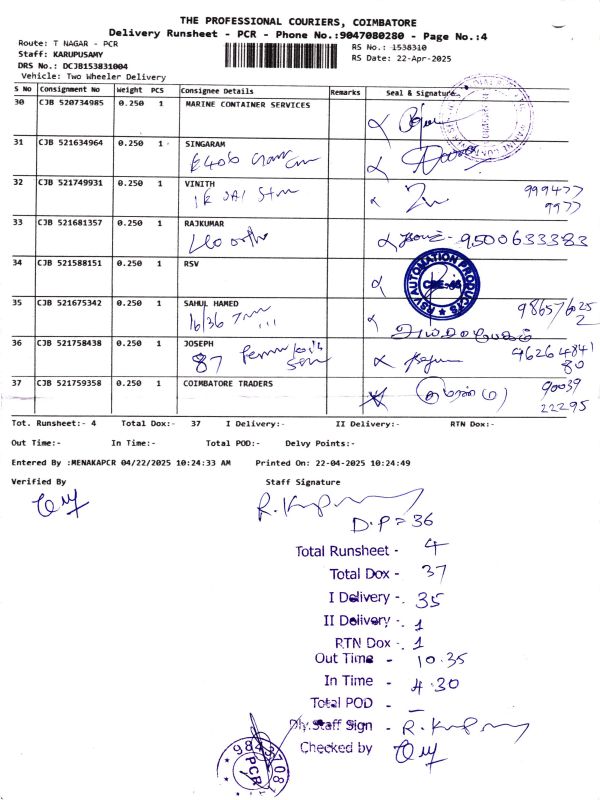 THE PROFESSIONAL COURIERS, COIMBATORE
Delivery Runsheet - PCR - Phone No.:9047080280 - Page No.:4
Route: T NAGAR - PCR
Staff: KARUPUSAMY
DRS No.: DCJB153831004
Vehicle: Two Wheeler Delivery
RS No.: 1538310
RS Date: 22-Apr-2025
S No Consignment No Weight PCS Consignee Details Remarks Seal & Signature
30 CJB 520734985 0.250 1 MARINE CONTAINER SERVICES
31 CJB 521634964 0.250 1 SINGARAM
32 CJB 521749931 0.250 1 VINITH
999477
9977
33 CJB 521681357 0.250 1 RAJKUMAR
9500633383
34 CJB 521588151 0.250 1 RSV
RSV AUTOMATION PRODUCTS
CBE-46
35 CJB 521675342 0.250 1 SAHUL HAMED
16/36
986576025
2
36 CJB 521758438 0.250 1 JOSEPH
87
96264841
80
37 CJB 521759358 0.250 1 COIMBATORE TRADERS
90039
22295
Tot. Runsheet:- 4 Total Dox:- 37 I Delivery:- II Delivery:- RTN Dox:-
Out Time:- In Time:- Total POD:- Delvy Points:-
Entered By :MENAKAPCR 04/22/2025 10:24:33 AM Printed On: 22-04-2025 10:24:49
Verified By Staff Signature
D.P = 36
Total Runsheet - 4
Total Dox - 37
I Delivery - 35
II Delivery - 1
RTN Dox - 1
Out Time - 10.35
In Time - 4.30
Total POD - —
Dly.Staff Sign -
Checked by
PCR